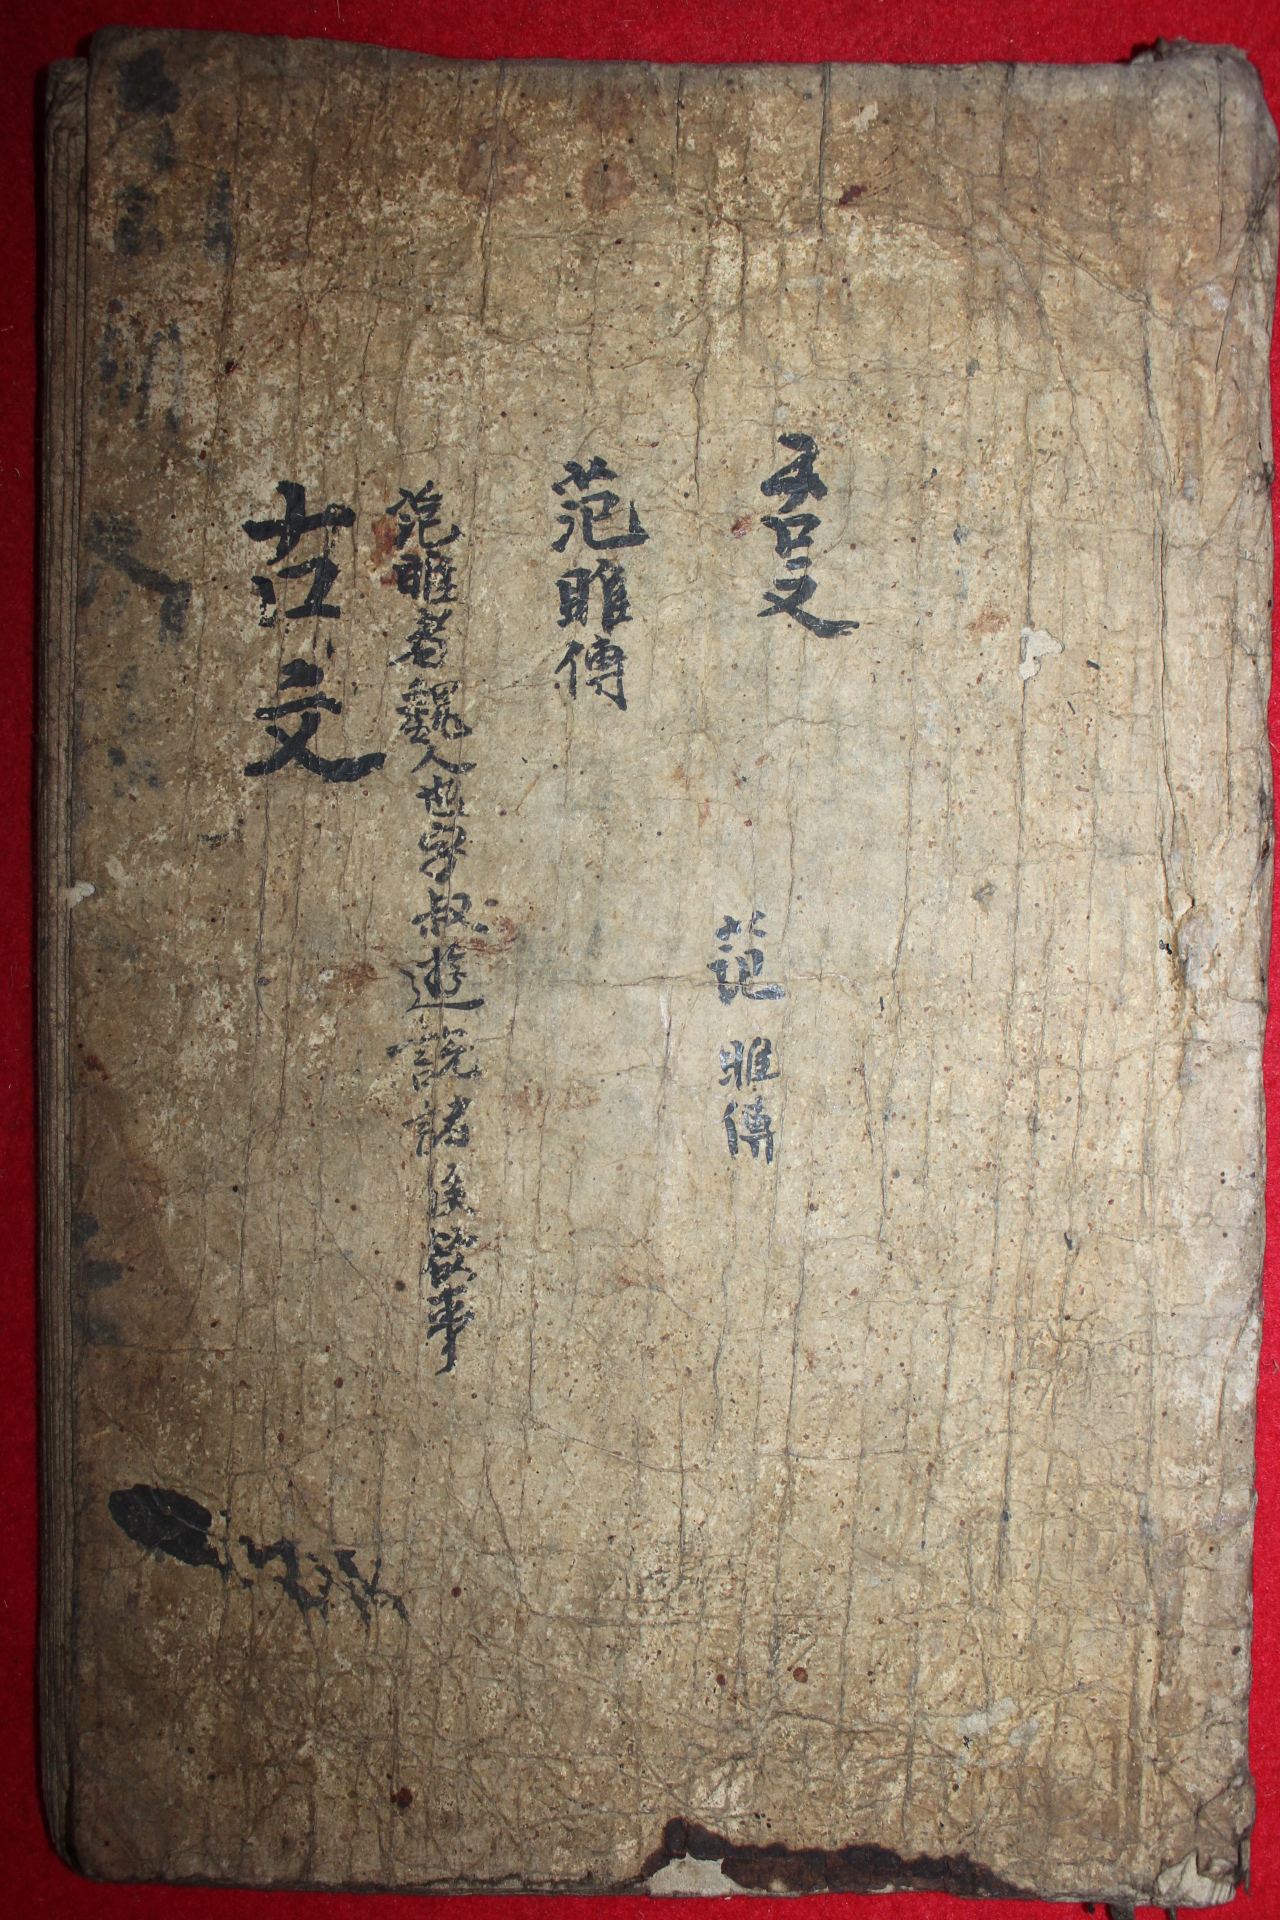 古文
范睢傳
范睢傳
范睢者魏人也字叔遊說諸侯欲事
古文